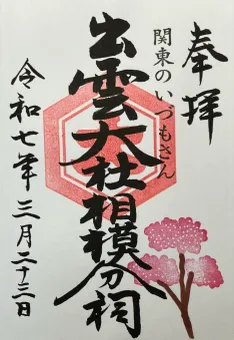 奉拝
関東のいづもさん
出雲大社相模分祠
令和七年三月二十三日